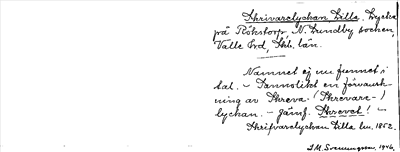 Skrivarelyckan Lilla. Lycka
på Rökstorp, N. Lundby socken,
Valle hrd, Skb. län.
Namnet ej nu funnet i
tal. – Sannolikt en förvansk-
ning av Skreva- (Skrevare-)
lyckan. – Jämf. Skrevet! –
Skrifvarelyckan Lilla lm. 1852.
J. M. Svenungsson. 1946.